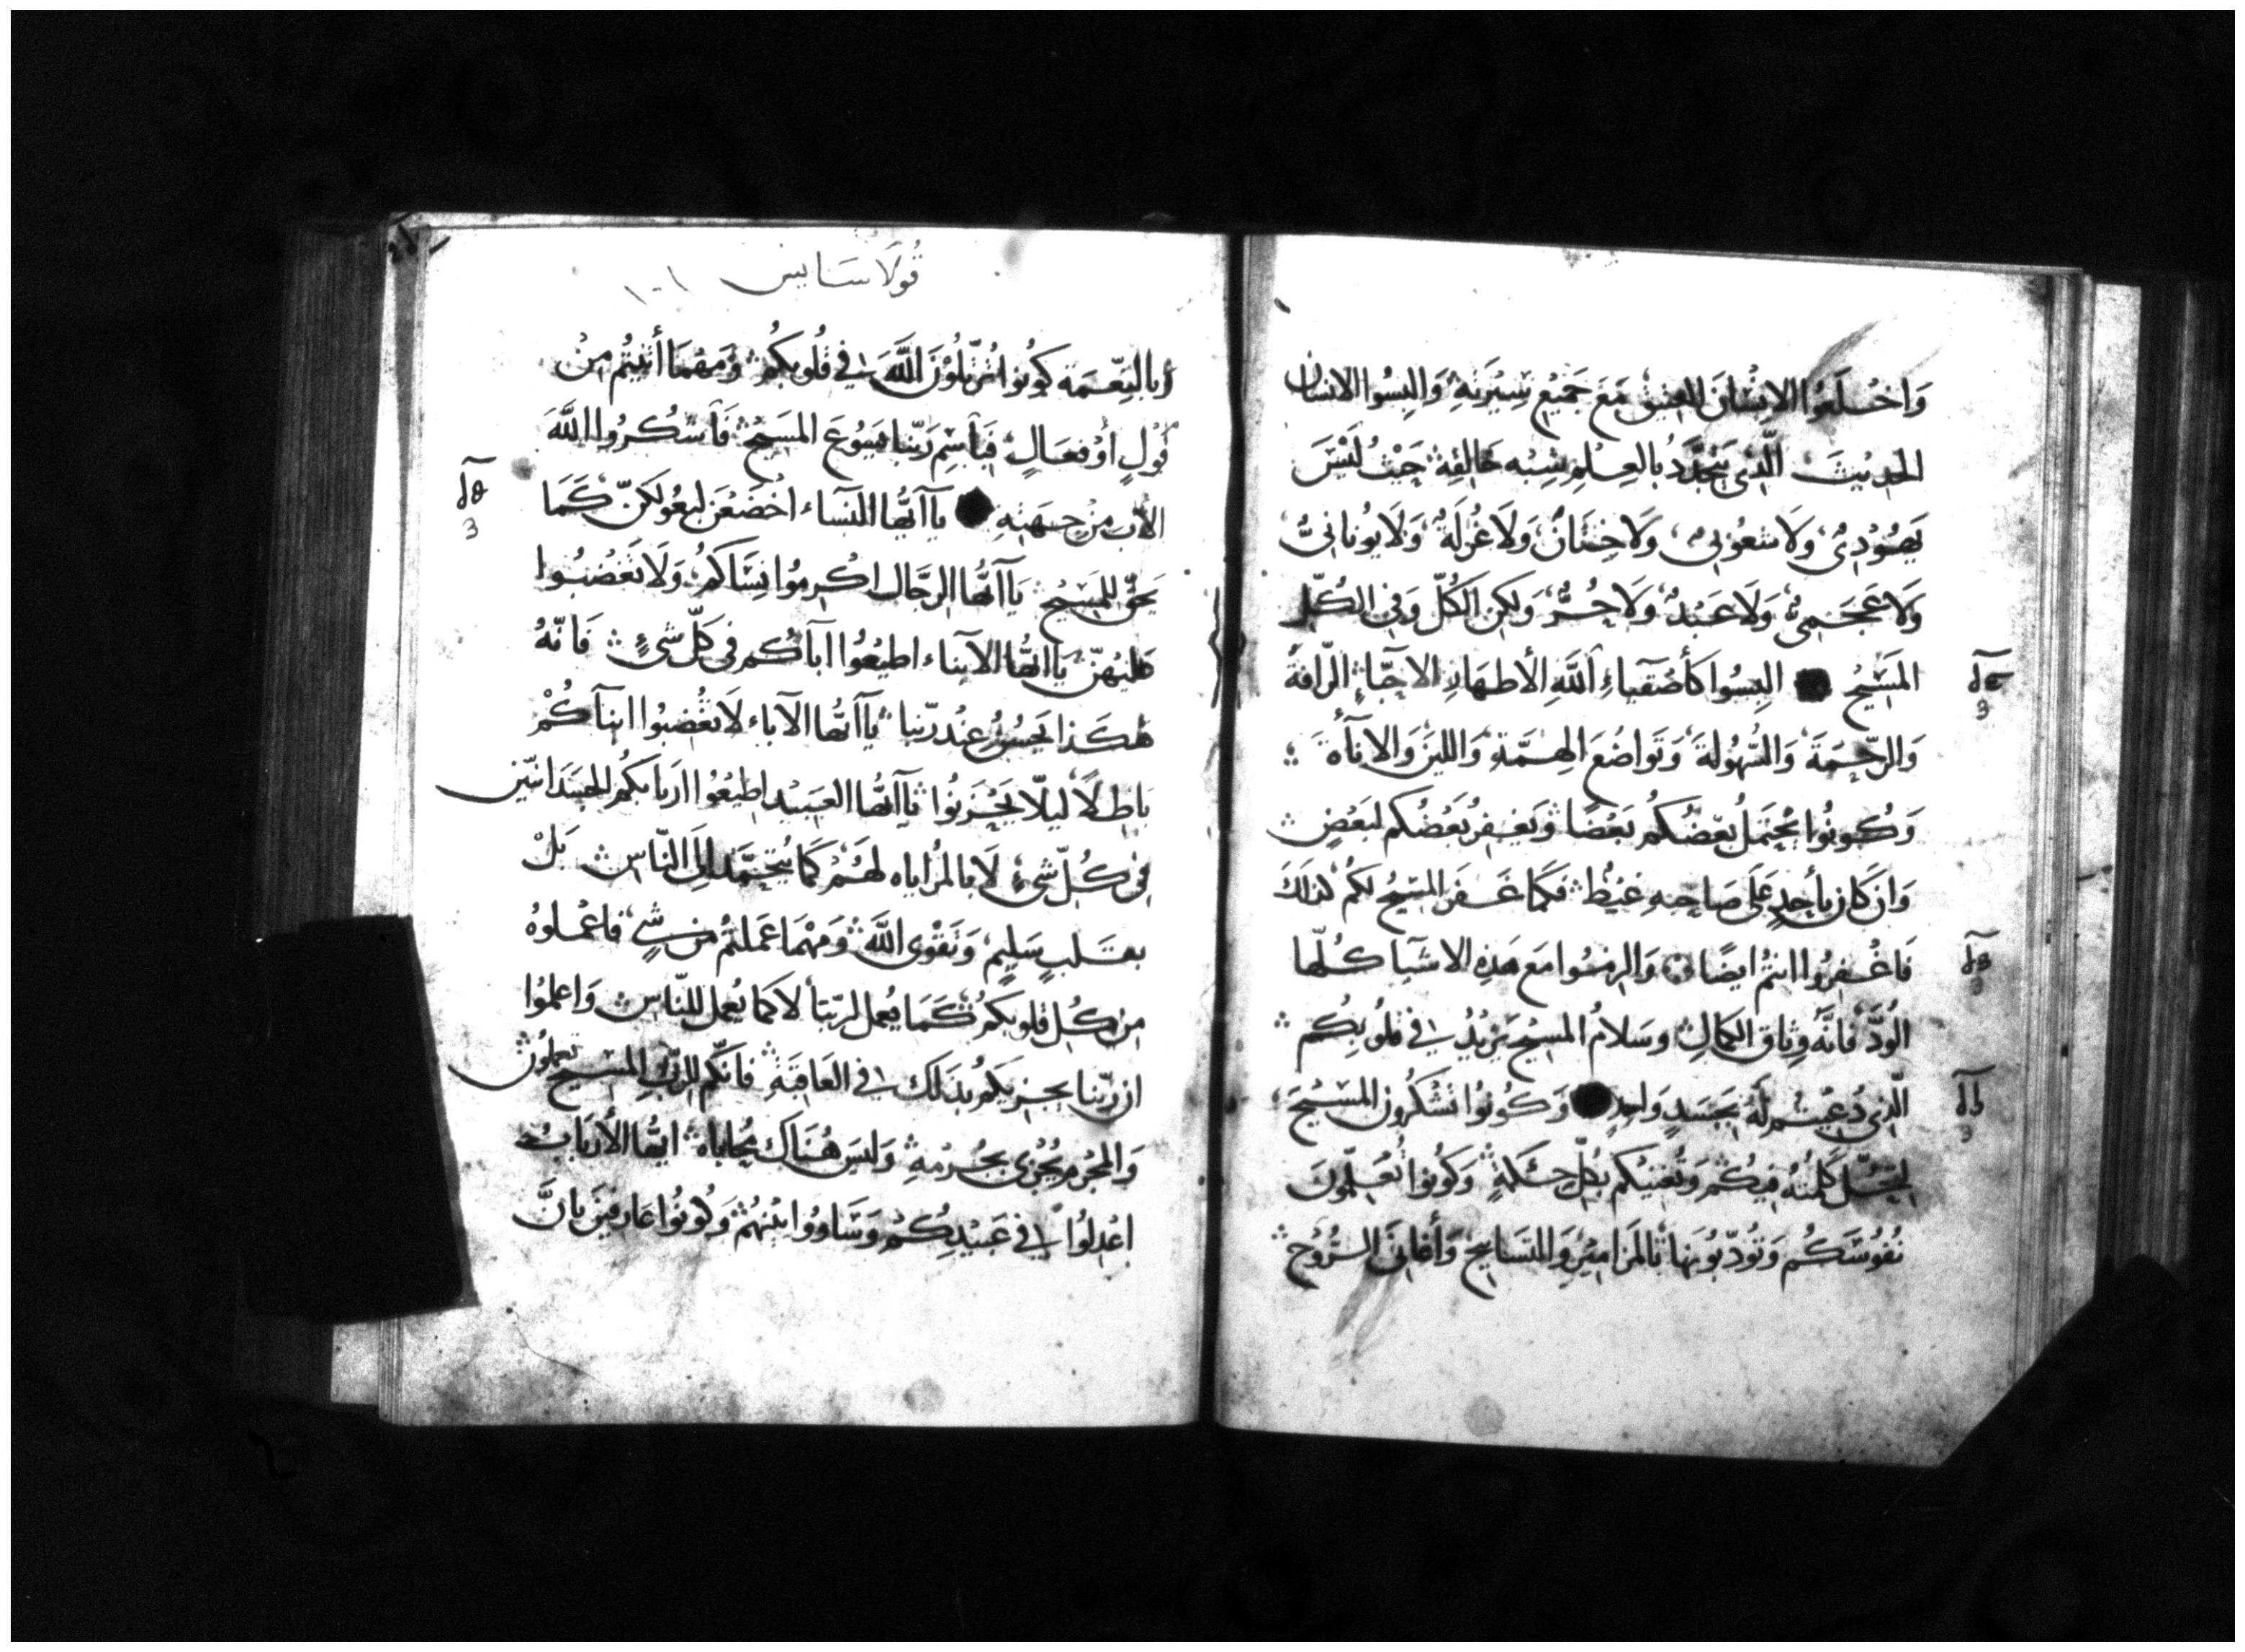 وَاخْلَعُوا الاِنْسَانَ العتيق مَعَ جَمِيْعِ سِيْرَتِهِ وَالبِسُوا الانسان
الحَدِيْثَ الَّذِى يَتَجَدَّدُ بالعِلْمِ بشِبْه خَالِقِهِ حَيْثُ لَيْسَ
يَهُوْدِىٌ وَلَا شعُوْبىٌ وَلَا خِتَانٌ وَلَا غُرْلَةٌ وَلَا يُونَانِىٌّ
وَلَا عَجَمِىٌّ وَلَا عَبْدٌ وَلَا حُرٌّ وَلكِن الكُلّ وَفِى الكُلِّ
المَسِيْحُ البِسُوا كَأَصْفِيَاءِ اللَّهِ الأَطهَارِ الاحِبَّاءِ الرَّافَةَ
وَالرَّحْمَةَ وَالسُّهُولَةَ وَتَوَاضُعَ الهِمَّةِ وَاللينَ وَالانَاةَ
وَكُونُوا يَحْتَمِلُ بَعْضُكُمْ بَعْضًا وَيَغفِرُ بَعْضُكُم لِبَعْضٍ
وَان كَان بأَحدٍ عَلَى صَاحِبِهِ غَيْظٌ فَكَمَا غَفَرَ المَسِيْحُ لَكُمْ كذلكَ
فَاغْفِرُوا انتُمْ ايضًا وَالزمُوا مَعَ هَذِهِ الاشيَا كُلّهَا
الوُدَّ فَانَّهُ وِثَاق الكمَالِ وسَلَامُ المسِيْحِ يَزيْدُ فى قُلُوبِكُم
الَّذِى دُعِيْتُم لَهُ بجَسَدٍ وَاحِدٍ وَكُونُوا تَشْكُرُون المَسِيْحَ
لِتَحُلّ كَلِمَتُهُ فِيكُمْ وَتُغنيْكم بكُلِّ حِكمَةٍ وَكُونُوا تُعَلِّمُونَ
نُفُوْسَكُم وَتُودِّبُوْنهَا بالمَزَامِيْرِ وَالتسَابِيح وَأَغَانِى الرُّوْحِ
قُولَاسَايِس
وَبالنِعْمَة كُونوا تُرَتِّلُوْنَ اللَّهَ فِى قُلُوبكُمْ وَمَهْمَا أَتيتُم مِنْ
قَوْلٍ أوْ فِعَالٍ فبَاسِمِ رَبِّنا يَسُوْعَ المَسِيْحِ فَاشْكُرُوا اللَّهَ
الاَبَ مِنْ جِهَتِهِ يَا أَيُّهَا النِسَاء اخْضَعْنَ لبعُولَتكنّ كَمَا
يَحقُّ للمَسِيْح يَا أَيُّهَا الرّجَال اكْرِمُوا نِسَاكمُ وَلَا تَغْضَبُوا
عَليْهنّ يَا ايُّهَا الابنَاء اطِيْعُوا ابآكُم فِى كلّ شَىءٍ فَانّهُ
هٰكَذَا يَحْسُنُ عِنْدَ رَبّنا يَا أَيُّهَا الآبَاء لَا تُغْضِبُوا ابنآكُمْ
بَاطِلًا ليلّا يَحْزَنُوا يَا أَيُّهَا العَبِيْد اطِيْعُوا اربَابَكُمُ الجسَدَانيّين
فِى كُلّ شَىءٍ لَا بالمُرَاياه لَهُمْ كَمَا يُتحَمَّد الَى النَّاس بَلْ
بقَلبٍ سَلِيْمٍ وَتَقْوَى اللَّهَ وَمَهْمَا عَمَلتُم مِنْ شىٍ فاعْمَلُوهُ
مِن كُل قُلوبكمُ كَمَا يُعمل لرَبّنا لا كَمَا يُعمل للنَّاسِ وَاعلمُوا
ان رَبّنا يجزيكُمْ بذلكَ فى العَاقبَةِ فَانّكم للرّبّ المَسِيْح تعملُونَ
وَالمجْرم يُجْزى بجُرمِهِ وَلَيسَ هُنَاك مُحَاباه ايُّهَا الأَربَابُ
اعْدِلُوا فِى عَبيْدِكُمْ وَسَاوُوا بَيْنَهُمْ وَكُونُوا عَارفينَ بانَّ